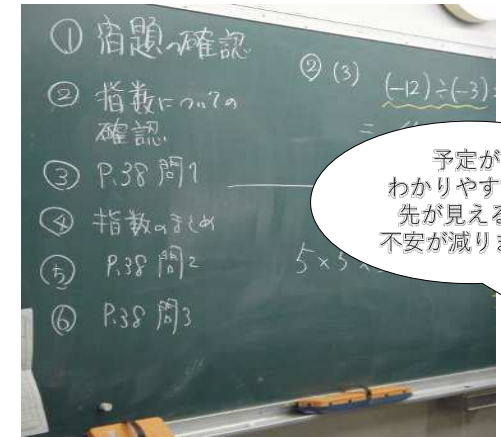 ① 宿題の確認
② 指数についての
確認.
③ P.38 問1
④ 指数のまとめ
⑤ P.38 問2
⑥ P.38 問3
② (3) (−12)÷(−3)
=
5×5×
予定が
わかりやす
先が見える
不安が減りま